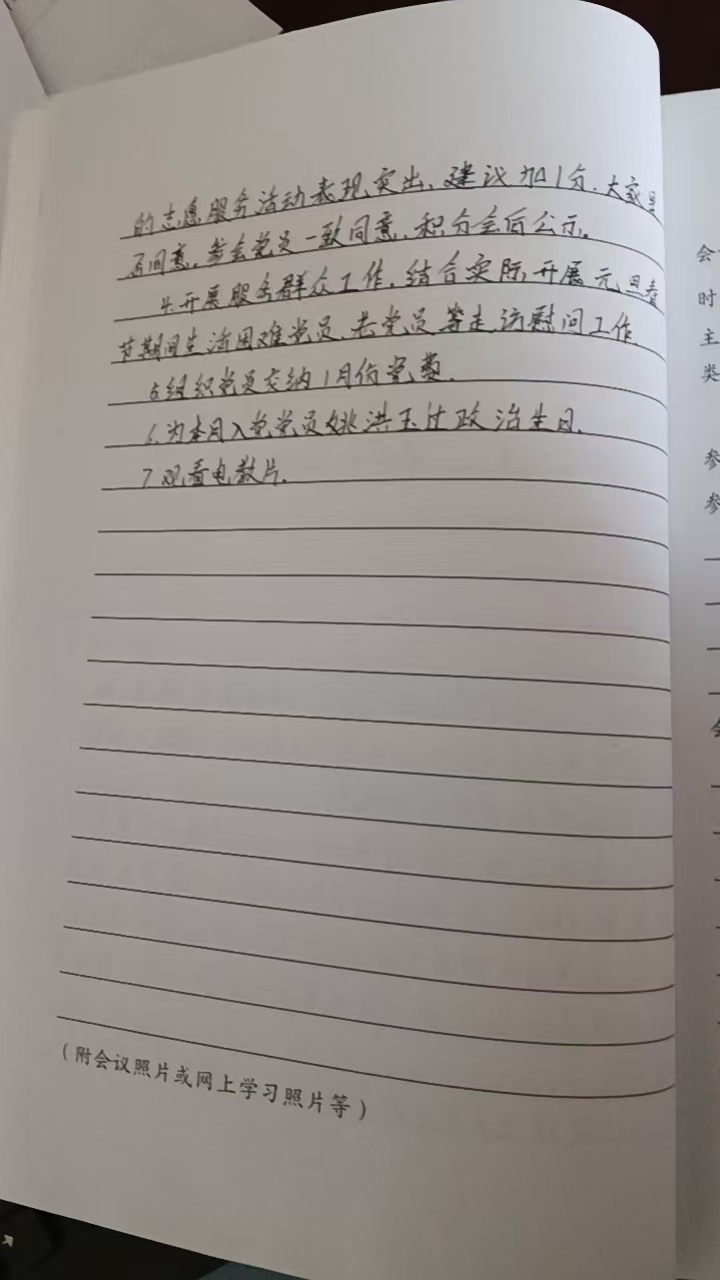 的志愿服务活动表现突出，建议加1分，大家是
否同意。参会党员一致同意，积分会后公示。
4.开展服务群众工作，结合实际开展元旦春
节期间生活困难党员、老党员等走访慰问工作
5.组织党员交纳1月份党费.
6.为本月入党党员姚洪玉过政治生日.
7.观看电教片.
（附会议照片或网上学习照片等）
会
时
主
类
参
参